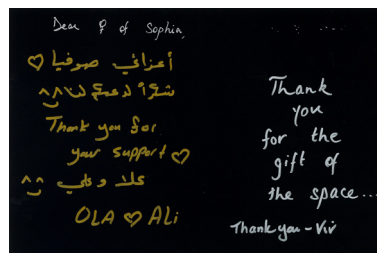 Dear ♀ of Sophia,
أعزائي صوفيا ♡
شكراً لدعمكم لنا ^^
Thank you for
your support ♡
علا وعلي ^^
OLA ♡ ALi
Thank
you
for the
gift of
the space...
Thank you - Viv